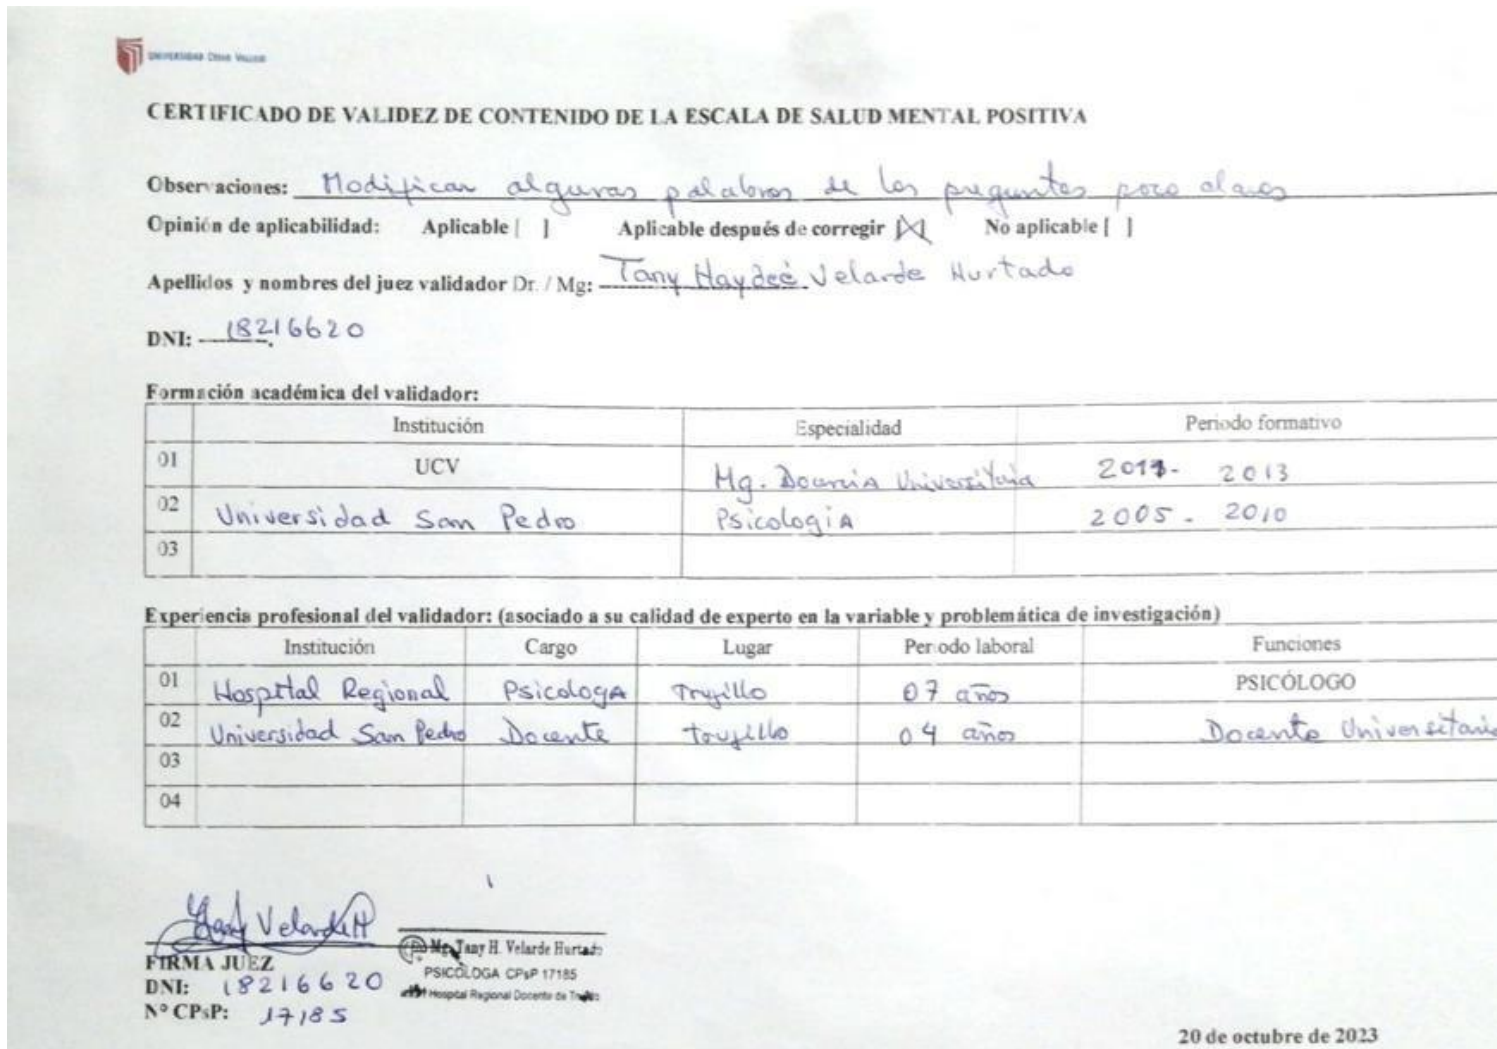 UNIVERSIDAD CÉSAR VALLEJO
CERTIFICADO DE VALIDEZ DE CONTENIDO DE LA ESCALA DE SALUD MENTAL POSITIVA
Observaciones: Modificar algunas palabras de las preguntas poco claras
Opinión de aplicabilidad: Aplicable [ ] Aplicable después de corregir [X] No aplicable [ ]
Apellidos y nombres del juez validador Dr. / Mg: Tany Haydeé Velarde Hurtado
DNI: 18216620
Formación académica del validador:
Institución Especialidad Periodo formativo
01 UCV Mg. Docencia Universitaria 2011- 2013
02 Universidad San Pedro Psicologia 2005 - 2010
03
Experiencia profesional del validador: (asociado a su calidad de experto en la variable y problemática de investigación)
Institución Cargo Lugar Periodo laboral Funciones
01 Hospital Regional Psicologa Trujillo 07 años PSICÓLOGO
02 Universidad San Pedro Docente Trujillo 04 años Docente Universitario
03
04
Tany Velarde H
Mg. Tany H. Velarde Hurtado
FIRMA JUEZ
PSICÓLOGA CPsP 17185
DNI: 18216620
Hospital Regional Docente de Trujillo
Nº CPsP: 17185
20 de octubre de 2023